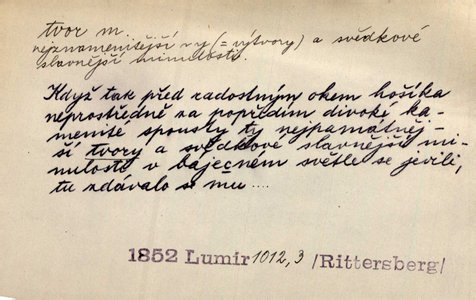 tvor m.
nejznamenitější vy (= výtvory) a svědkové
slavnější minulosti.
Když tak před radostným okem hošíka
neprostředně za popředím divoké ka-
menité spousty ty nejpamátněj-
ší tvory a svědkové slavnější mi-
nulosti v báječném světle se jevili,
tu zdávalo se mu ....
1852 Lumír 1012,3 /Rittersberg/